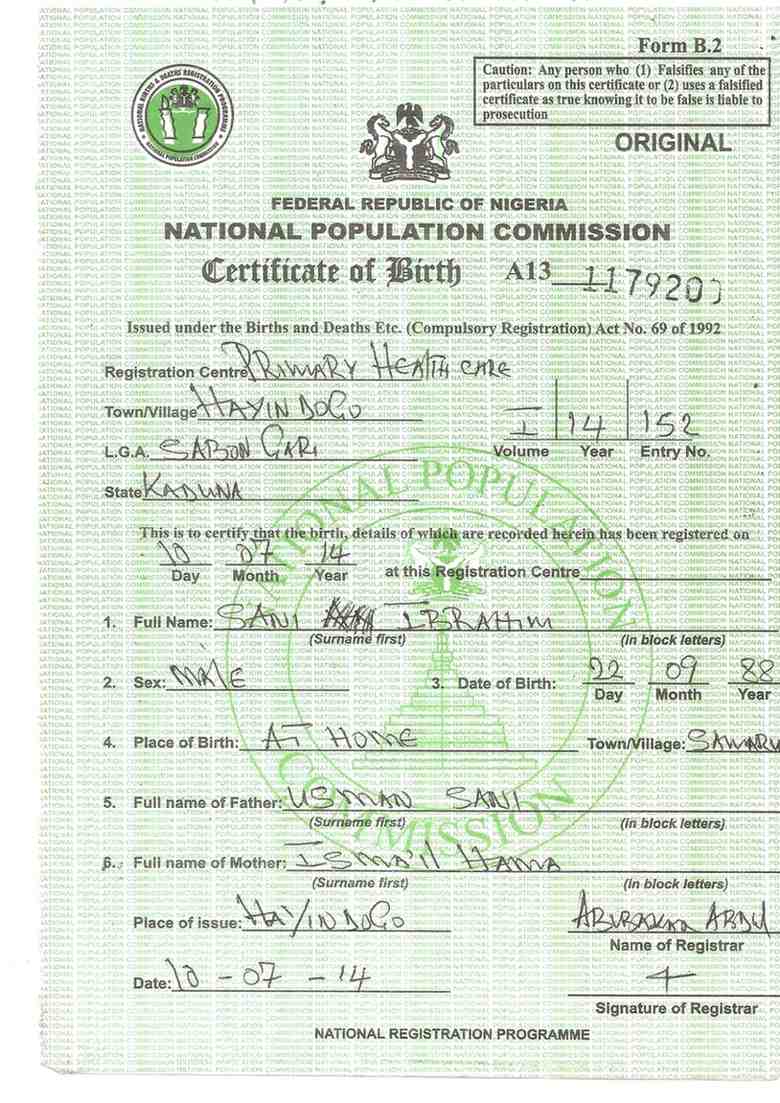 Form B.2
Caution: Any person who (1) Falsifies any of the
particulars on this certificate or (2) uses a falsified
certificate as true knowing it to be false is liable to
prosecution
ORIGINAL
NATIONAL BIRTHS & DEATHS REGISTRATION PROGRAMME
NATIONAL POPULATION COMMISSION
FEDERAL REPUBLIC OF NIGERIA
NATIONAL POPULATION COMMISSION
Certificate of Birth A13
Issued under the Births and Deaths Etc. (Compulsory Registration) Act No. 69 of 1992
Registration Centre PRIMARY HEALTH CARE
Town/Village HAYIN DOGO
I 14 152
L.G.A. SABON GARI Volume Year Entry No.
State KADUNA
NATIONAL POPULATION COMMISSION
This is to certify that the birth, details of which are recorded herein has been registered on
10 07 14
Day Month Year at this Registration Centre
1. Full Name: SANI IBRAHIM
(Surname first) (in block letters)
2. Sex: MALE 3. Date of Birth: 22 09 88
Day Month Year
4. Place of Birth: AT HOME Town/Village:
5. Full name of Father: USMAN SANI
(Surname first) (in block letters)
6. Full name of Mother: ISMA'IL
(Surname first) (in block letters)
Place of issue: HAYIN DOGO ABUBAKAR ABDU
Name of Registrar
Date: 10 - 07 - 14
Signature of Registrar
NATIONAL REGISTRATION PROGRAMME